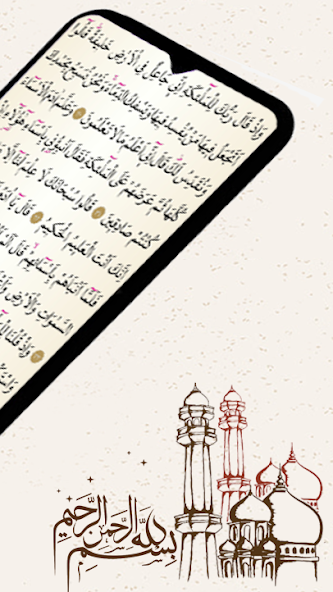 وَإِذْ قَالَ رَبُّكَ لِلْمَلَٰٓئِكَةِ إِنِّي جَاعِلٌ فِي الْأَرْضِ خَلِيفَةً قَالُوٓا
أَتَجْعَلُ فِيهَا مَنْ يُفْسِدُ فِيهَا وَيَسْفِكُ الدِّمَآءَ وَنَحْنُ نُسَبِّحُ بِحَمْدِكَ
وَنُقَدِّسُ لَكَ قَالَ إِنِّيٓ أَعْلَمُ مَا لَا تَعْلَمُونَ وَعَلَّمَ ءَادَمَ الْأَسْمَآءَ
كُلَّهَا ثُمَّ عَرَضَهُمْ عَلَى الْمَلَٰٓئِكَةِ فَقَالَ أَنْبِـُٔونِي بِأَسْمَآءِ هَٰٓؤُلَآءِ
كُنْتُمْ صَادِقِينَ قَالُوا سُبْحَانَكَ لَا عِلْمَ لَنَآ إِلَّا مَا
إِنَّكَ أَنْتَ الْعَلِيمُ الْحَكِيمُ قَالَ يَٰٓـَٔادَمُ
فَلَمَّآ أَنْبَأَهُمْ بِأَسْمَآئِهِمْ قَالَ أَلَمْ
السَّمَٰوَاتِ وَالْأَرْضِ وَأَ
وَإِذْ قُلْنَا لِلْ
بِسْمِ اللَّهِ الرَّحْمَٰنِ الرَّحِيمِ